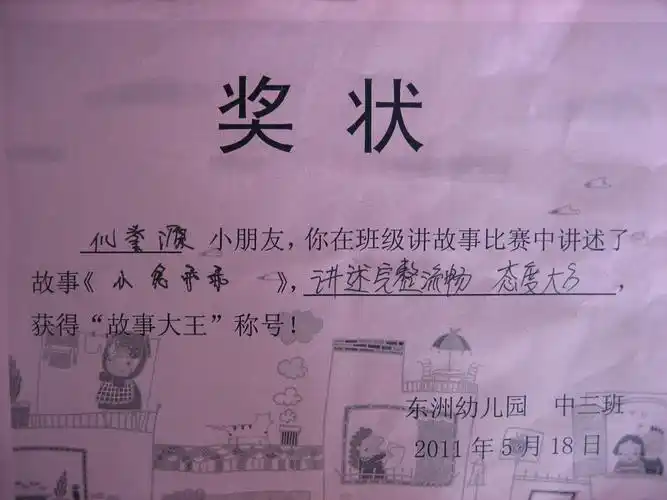 奖状
源 小朋友，你在班级讲故事比赛中讲述了
故事《小兔乖乖》，讲述完整流畅 态度大方，
获得“故事大王”称号！
东洲幼儿园 中三班
2011年5月18日